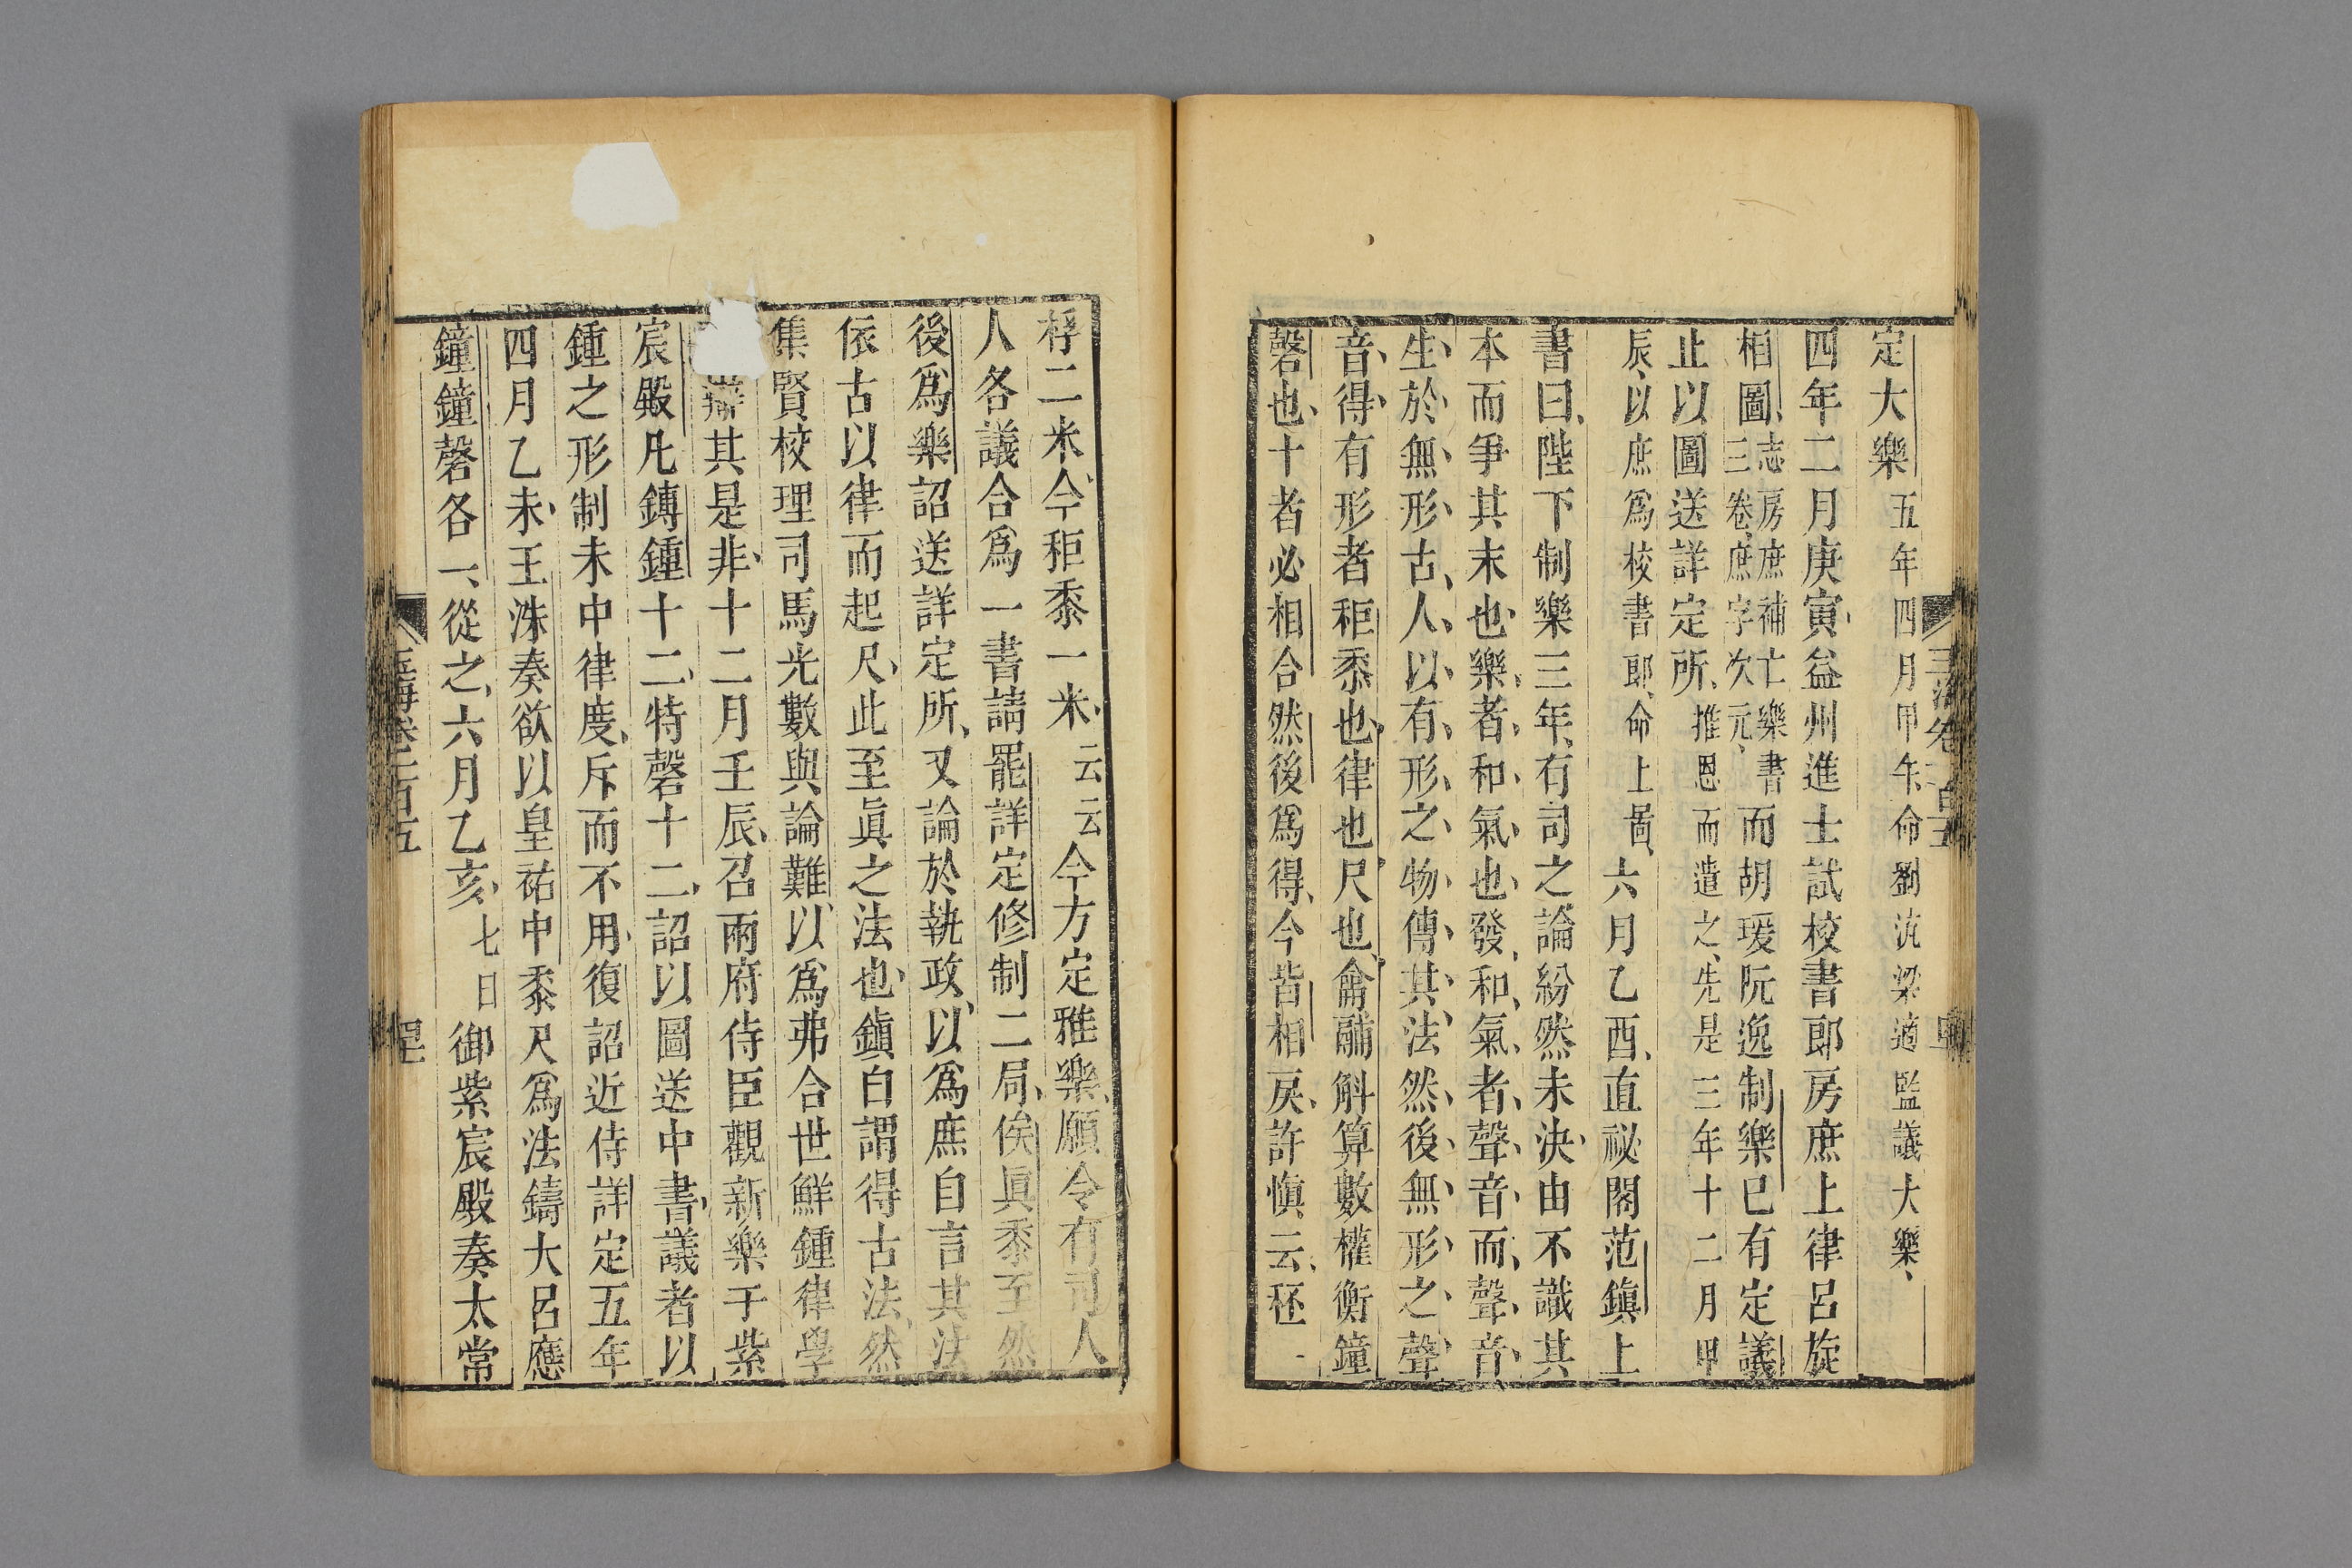 定大樂五年四月甲午命劉沆梁適監議大樂
四年二月庚寅益州進士試校書郎房庶上律呂旋
相圖志房庶補亡樂書三卷庶字次元而胡瑗阮逸制樂已有定議
止以圖送詳定所推恩而遣之先是三年十二月甲
辰以庶爲校書郎命上啚六月乙酉直祕閣范鎭上
書曰陛下制樂三年有司之論紛然未決由不識其
本而爭其末也樂者和氣也發和氣者聲音而聲音
生於無形古人以有形之物傳其法然後無形之聲
音得有形者秬黍也律也尺也龠鬴斛算數權衡鐘
磬也十者必相合然後爲得今皆相戾許愼云秠一
稃二米今秬黍一米云云今方定雅樂願令有司人
人各議合爲一書請罷詳定修制二局俟眞黍至然
後爲樂詔送詳定所又論於執政以爲庶自言其法
依古以律而起尺此至眞之法也鎭自謂得古法然
集賢校理司馬光數與論難以爲弗合世鮮鍾律學
辯其是非十二月壬辰召兩府侍臣觀新樂于紫
宸殿凡鎛鍾十二特磬十二詔以圖送中書議者以
鍾之形制未中律度斥而不用復詔近侍詳定五年
四月乙未王洙奏欲以皇祐中黍尺爲法鑄大呂應
鐘鐘磬各一從之六月乙亥七日御紫宸殿奏太常
玉海卷一百五